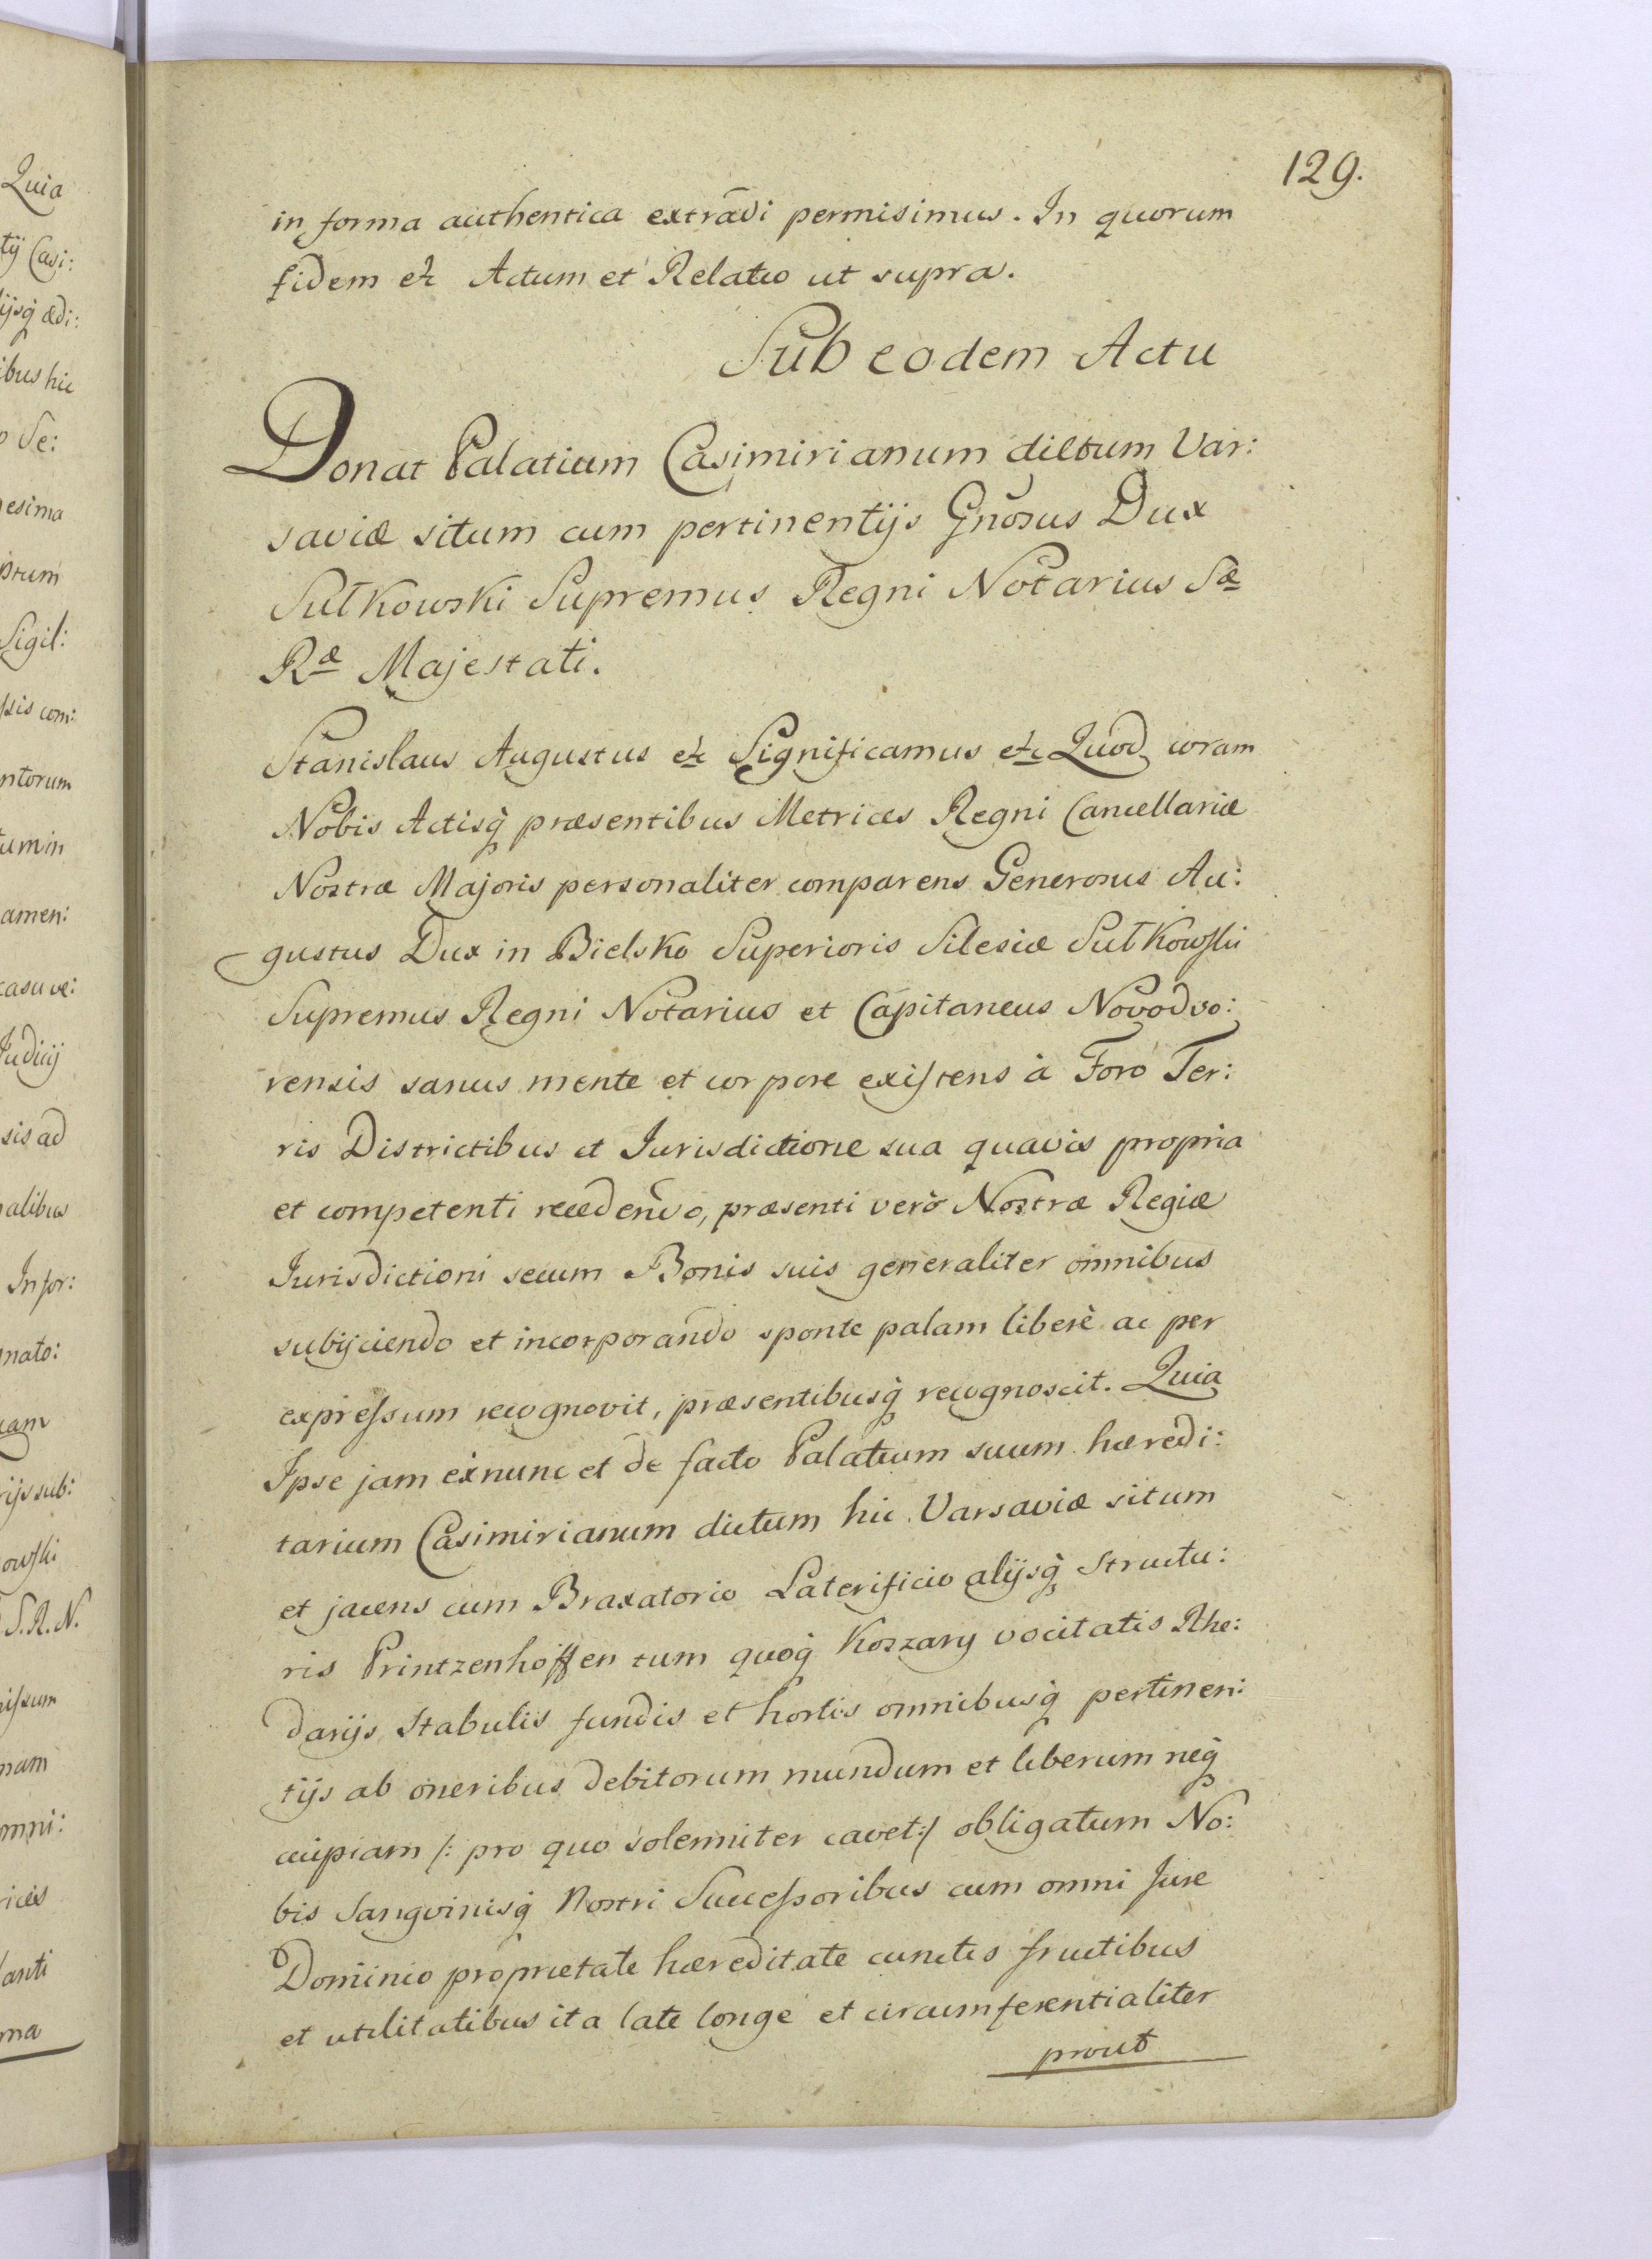 129.
in forma authentica extradi permisimus. In quorum
fidem etc Actum et Relatio ut supra.
Sub eodem Actu
Donat Palatium Casimirianum dictum Var:
saviæ situm cum pertinentijs Gnosus Dux
Sułkowski Supremus Regni Notarius Sæ
Ræ Majestati.
Stanislaus Augustus etc Significamus etc Quod coram
Nobis Actisq præsentibus Metrices Regni Cancellariæ
Nostræ Majoris personaliter comparens Generosus Au:
gustus Dux in Bielsko Superioris Silesiæ Sułkowski
Supremus Regni Notarius et Capitaneus Novodvo:
rensis sanus mente et corpore existens à Foro Ter:
ris Districtibus et Iurisdictione sua quavis propria
et competenti recedendo, præsenti verò Nostræ Regiæ
Iurisdictioni secum Bonis suis generaliter omnibus
subijciendo et incorporando sponte palam liberè ac per
expressum recognovit, præsentibusq recognoscit. Quia
Ipse jam exnunc et de facto Palatium suum hæredi:
tarium Casimirianum dictum hic Varsaviæ situm
et jacens cum Braxatorio Laterificio alijsq Structu:
ris Printzenhoffen tum quoq Koszary vocitatis Rhe:
darijs Stabulis fundis et hortis omnibusq pertinen:
tijs ab oneribus debitorum mundum et liberum neq
cuipiam /: pro quo solenniter cavet:/ obligatum No:
bis Sangvinisq Nostri Successoribus cum omni Jure
Dominio proprietate hæreditate cunctis fructibus
et utilitatibus ita late longe et circumferentialiter
prout
Quia
tij Casi:
ijsq ædi:
ibus hic
o Se:
esima
Sigil:
ssis com:
ntorum
um in
amen:
casu ve:
Iudicij
sis ad
alibus
Infor:
nato:
rijs sub:
owski
S. R. N.
nam
omni:
rices
anti
ma